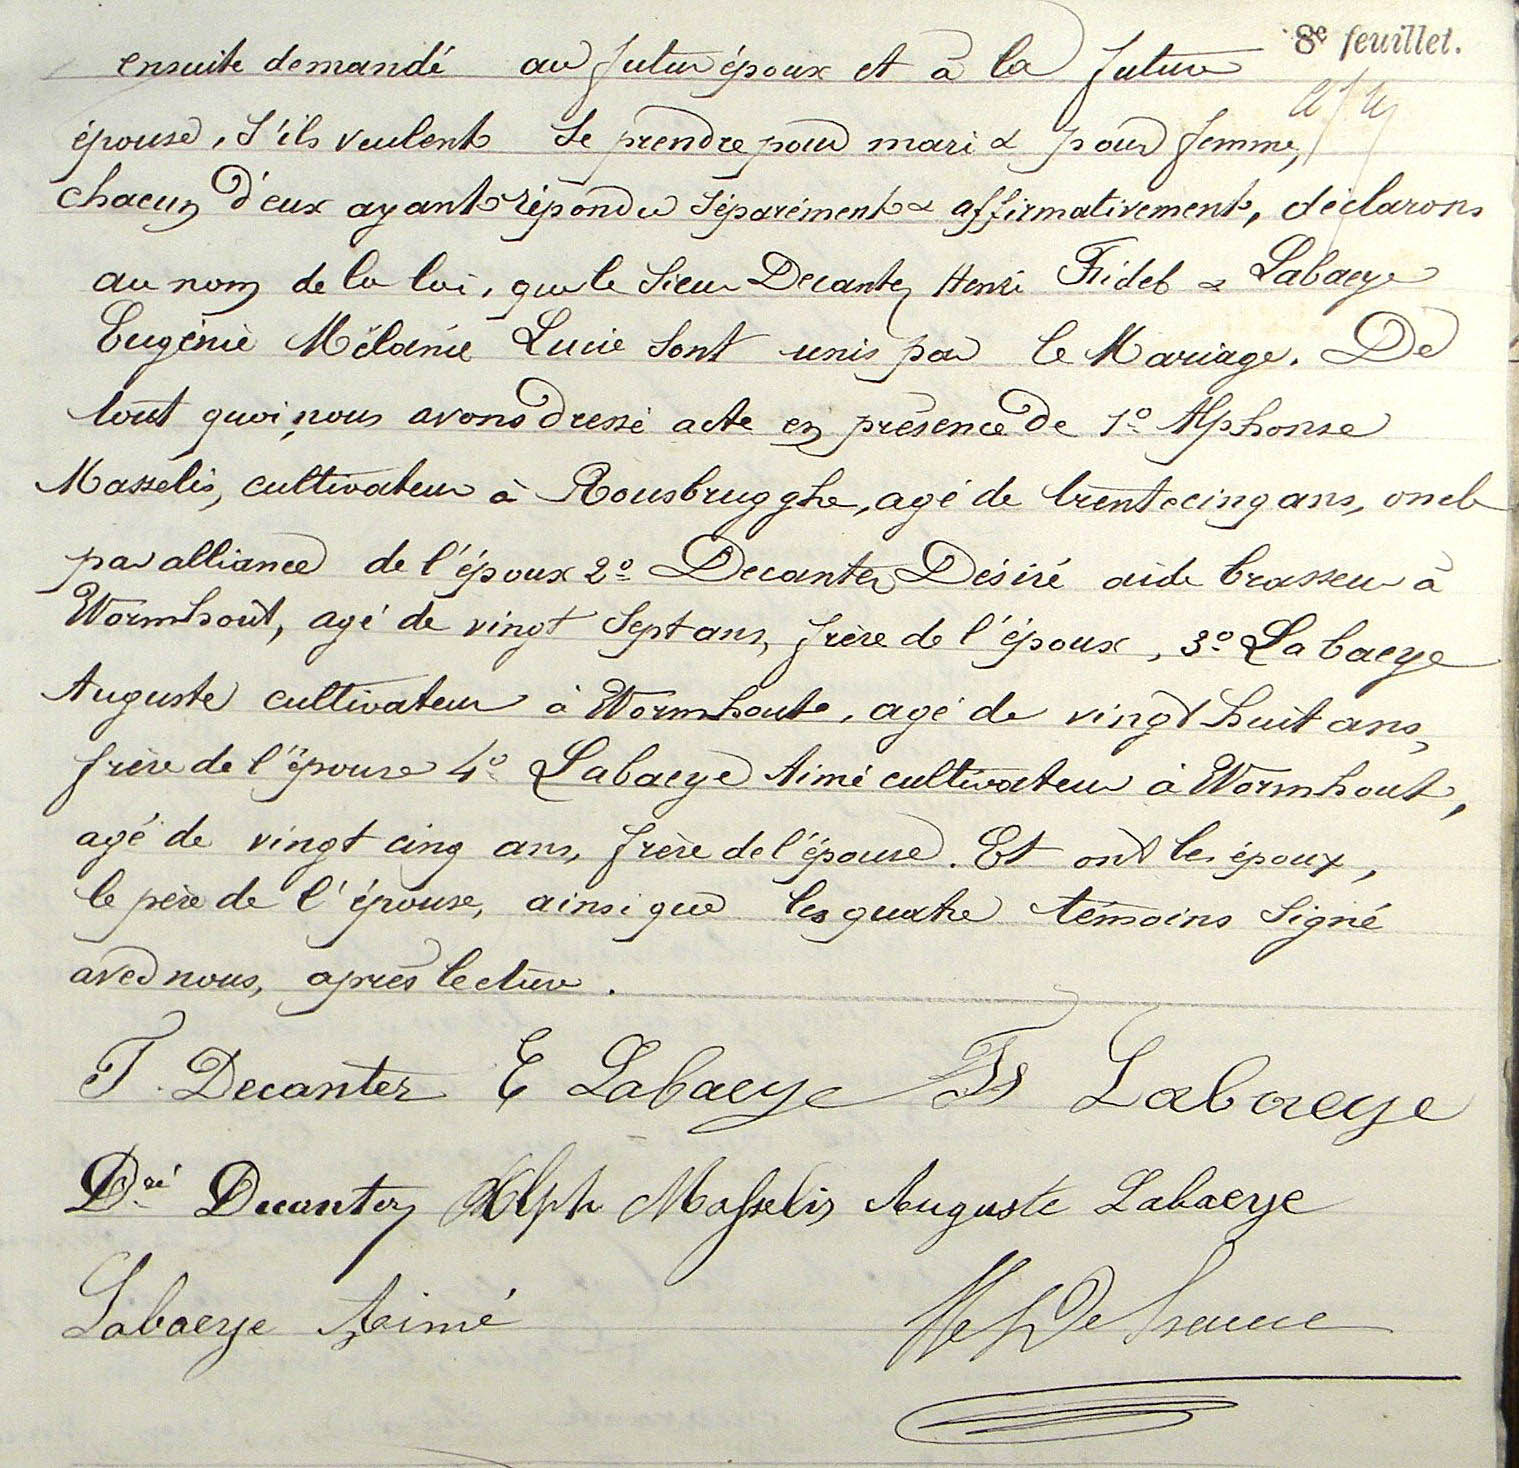 8e feuillet.
ensuite demandé au futur époux et à la future
épouse, s'ils veulent se prendre pour mari & pour femme,
chacun d'eux ayant répondu séparément & affirmativement, déclarons
au nom de la loi, que le sieur Decanter Henri Fidel & Labaeye
Eugénie Mélanie Lucie sont unis par le Mariage. De
tout quoi, nous avons dressé acte en présence de 1º Alphonse
Masselis, cultivateur à Rousbrugghe, agé de trente cinq ans, oncle
par alliance de l'époux 2º Decanter Désiré aide brasseur à
Wormhout, agé de vingt sept ans, frère de l'époux, 3º Labaeye
Auguste cultivateur à Wormhoute, agé de vingt huit ans,
frère de l'épouse 4º Labaeye Aimé cultivateur à Wormhout,
agé de vingt cinq ans, frère de l'épouse. Et ont les époux,
le père de l'épouse, ainsi que les quatre témoins signé
avec nous, après lecture.
F. Decanter E Labaeye Fs Labaeye
Dré Decanter Alph Masselis Auguste Labaeye
Labaeye Aimé